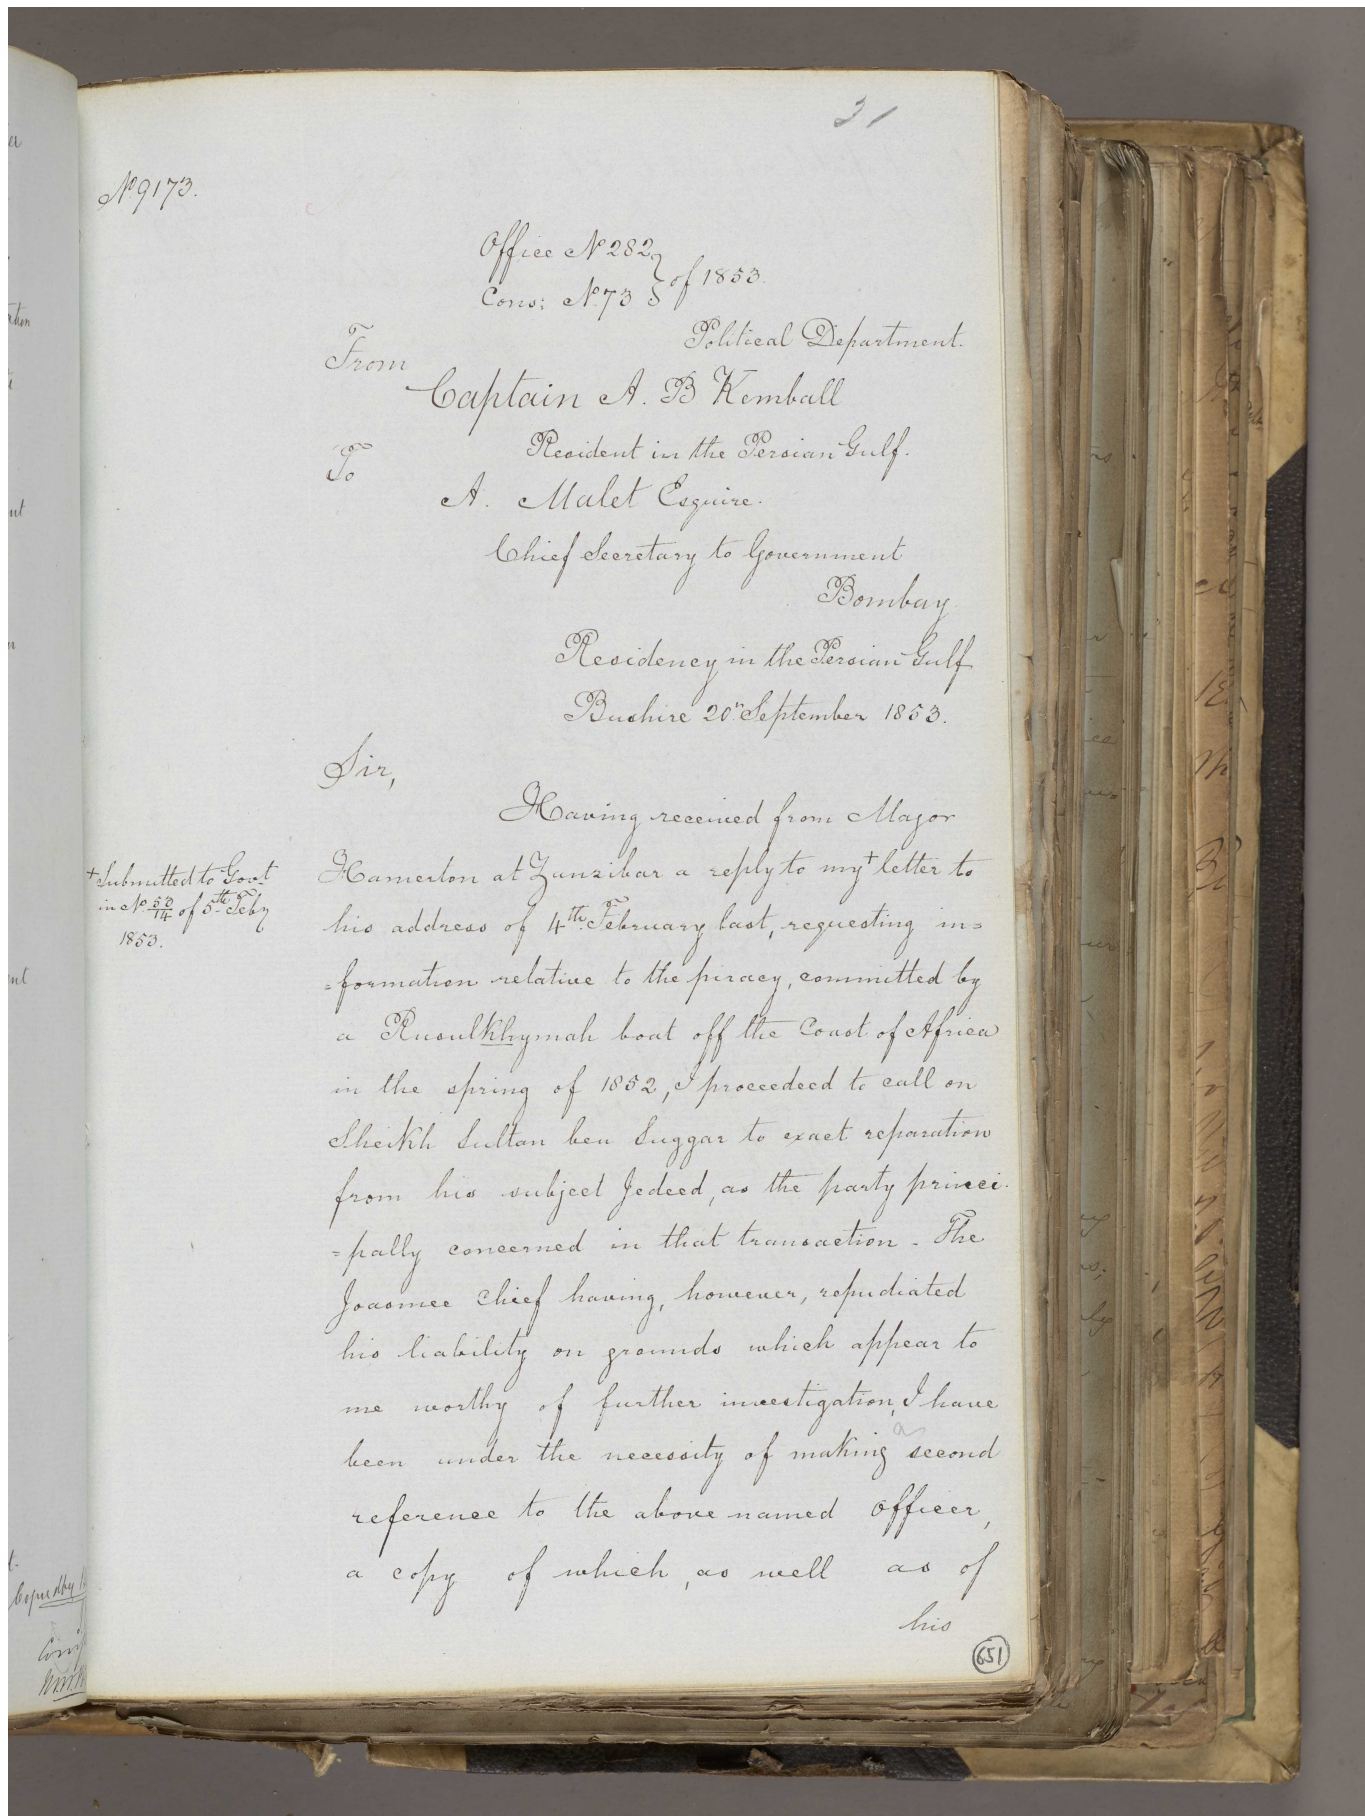 31
No 9173.
Office No 282 } of 1853.
Cons: No 73
Political Department.
From
Captain A. B Kemball
Resident in the Persian Gulf.
To
A. Malet Esquire.
Chief Secretary to Government
Bombay
Residency in the Persian Gulf
Bushire 20th September 1853.
Sir,
Having received from Major
Hamerton at Zanzibar a reply to my + letter to
+ Submitted to Govt
in No 50/14 of 5th Feby
1853.
his address of 4th February last, requesting in=
=formation relative to the piracy, committed by
a Rusulkhymah boat off the Coast of Africa
in the spring of 1852, I proceeded to call on
Sheikh Sultan ben Suggar to exact reparation
from his subject Jedeed, as the party princi-
=pally concerned in that transaction - The
Joasmee Chief having, however, repudiated
his liability on grounds which appear to
me worthy of further investigation, I have
been under the necessity of making a second
reference to the above named officer,
a copy of which, as well as of
his
651